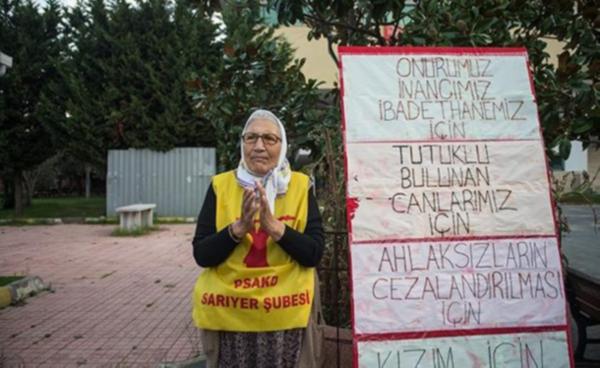 ONURUMUZ
INANCIMIZ
IBADETHANEMIZ
IÇIN
TUTUKLU
BULUNAN
CANLARIMIZ
IÇIN
AHLAKSIZLARIN
CEZALANDIRILMASI
IÇIN
KIZIM IÇIN
PSAKD
SARIYER ŞUBESİ